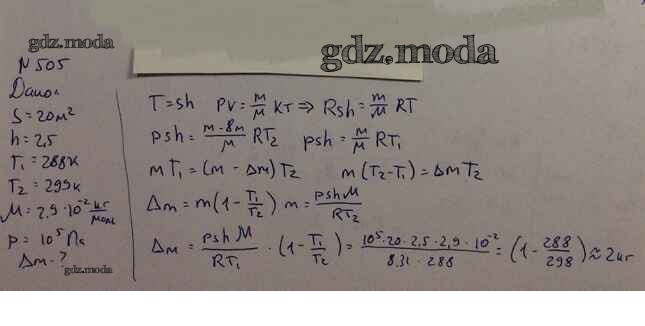 gdz.moda
gdz.moda
N 505
Дано:
S = 20м²
h = 2,5
T₁ = 288к
T₂ = 299к
M = 2,9 · 10⁻² кг/моль
p = 10⁵ Па
Δm - ?
gdz.moda
T = sh pV = m/M KT ⇒ Rsh = m/M RT
psh = m - 8m/M RT₂ psh = m/M RT₁
mT₁ = (m - Δm)T₂ m(T₂ - T₁) = ΔmT₂
Δm = m(1 - T₁/T₂) m = pshM/RT₂
Δm = pshM/RT₁ · (1 - T₁/T₂) = 10⁵ · 20 · 2,5 · 2,9 · 10⁻²/8,31 · 288 = (1 - 288/298) ≈ 2кг